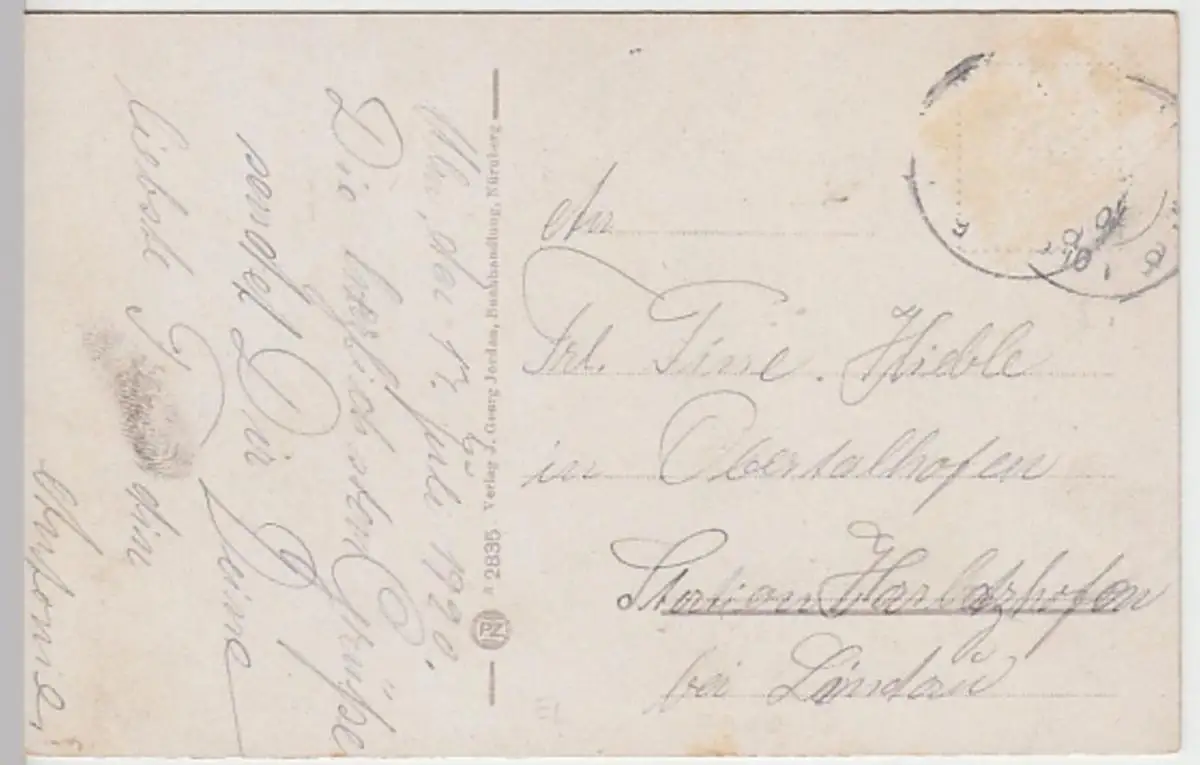 Ulm, den 13. Juli 1920.
Die herzlichsten Grüße
sendet Dir Deine
liebste
Antonie.
A 2835 Verlag J. Georg Jordan, Buchhandlung, Nürnberg
An
Frl. Fine. Hieble
in Obertalhofen
Station Harbatzhofen
bei Lindau